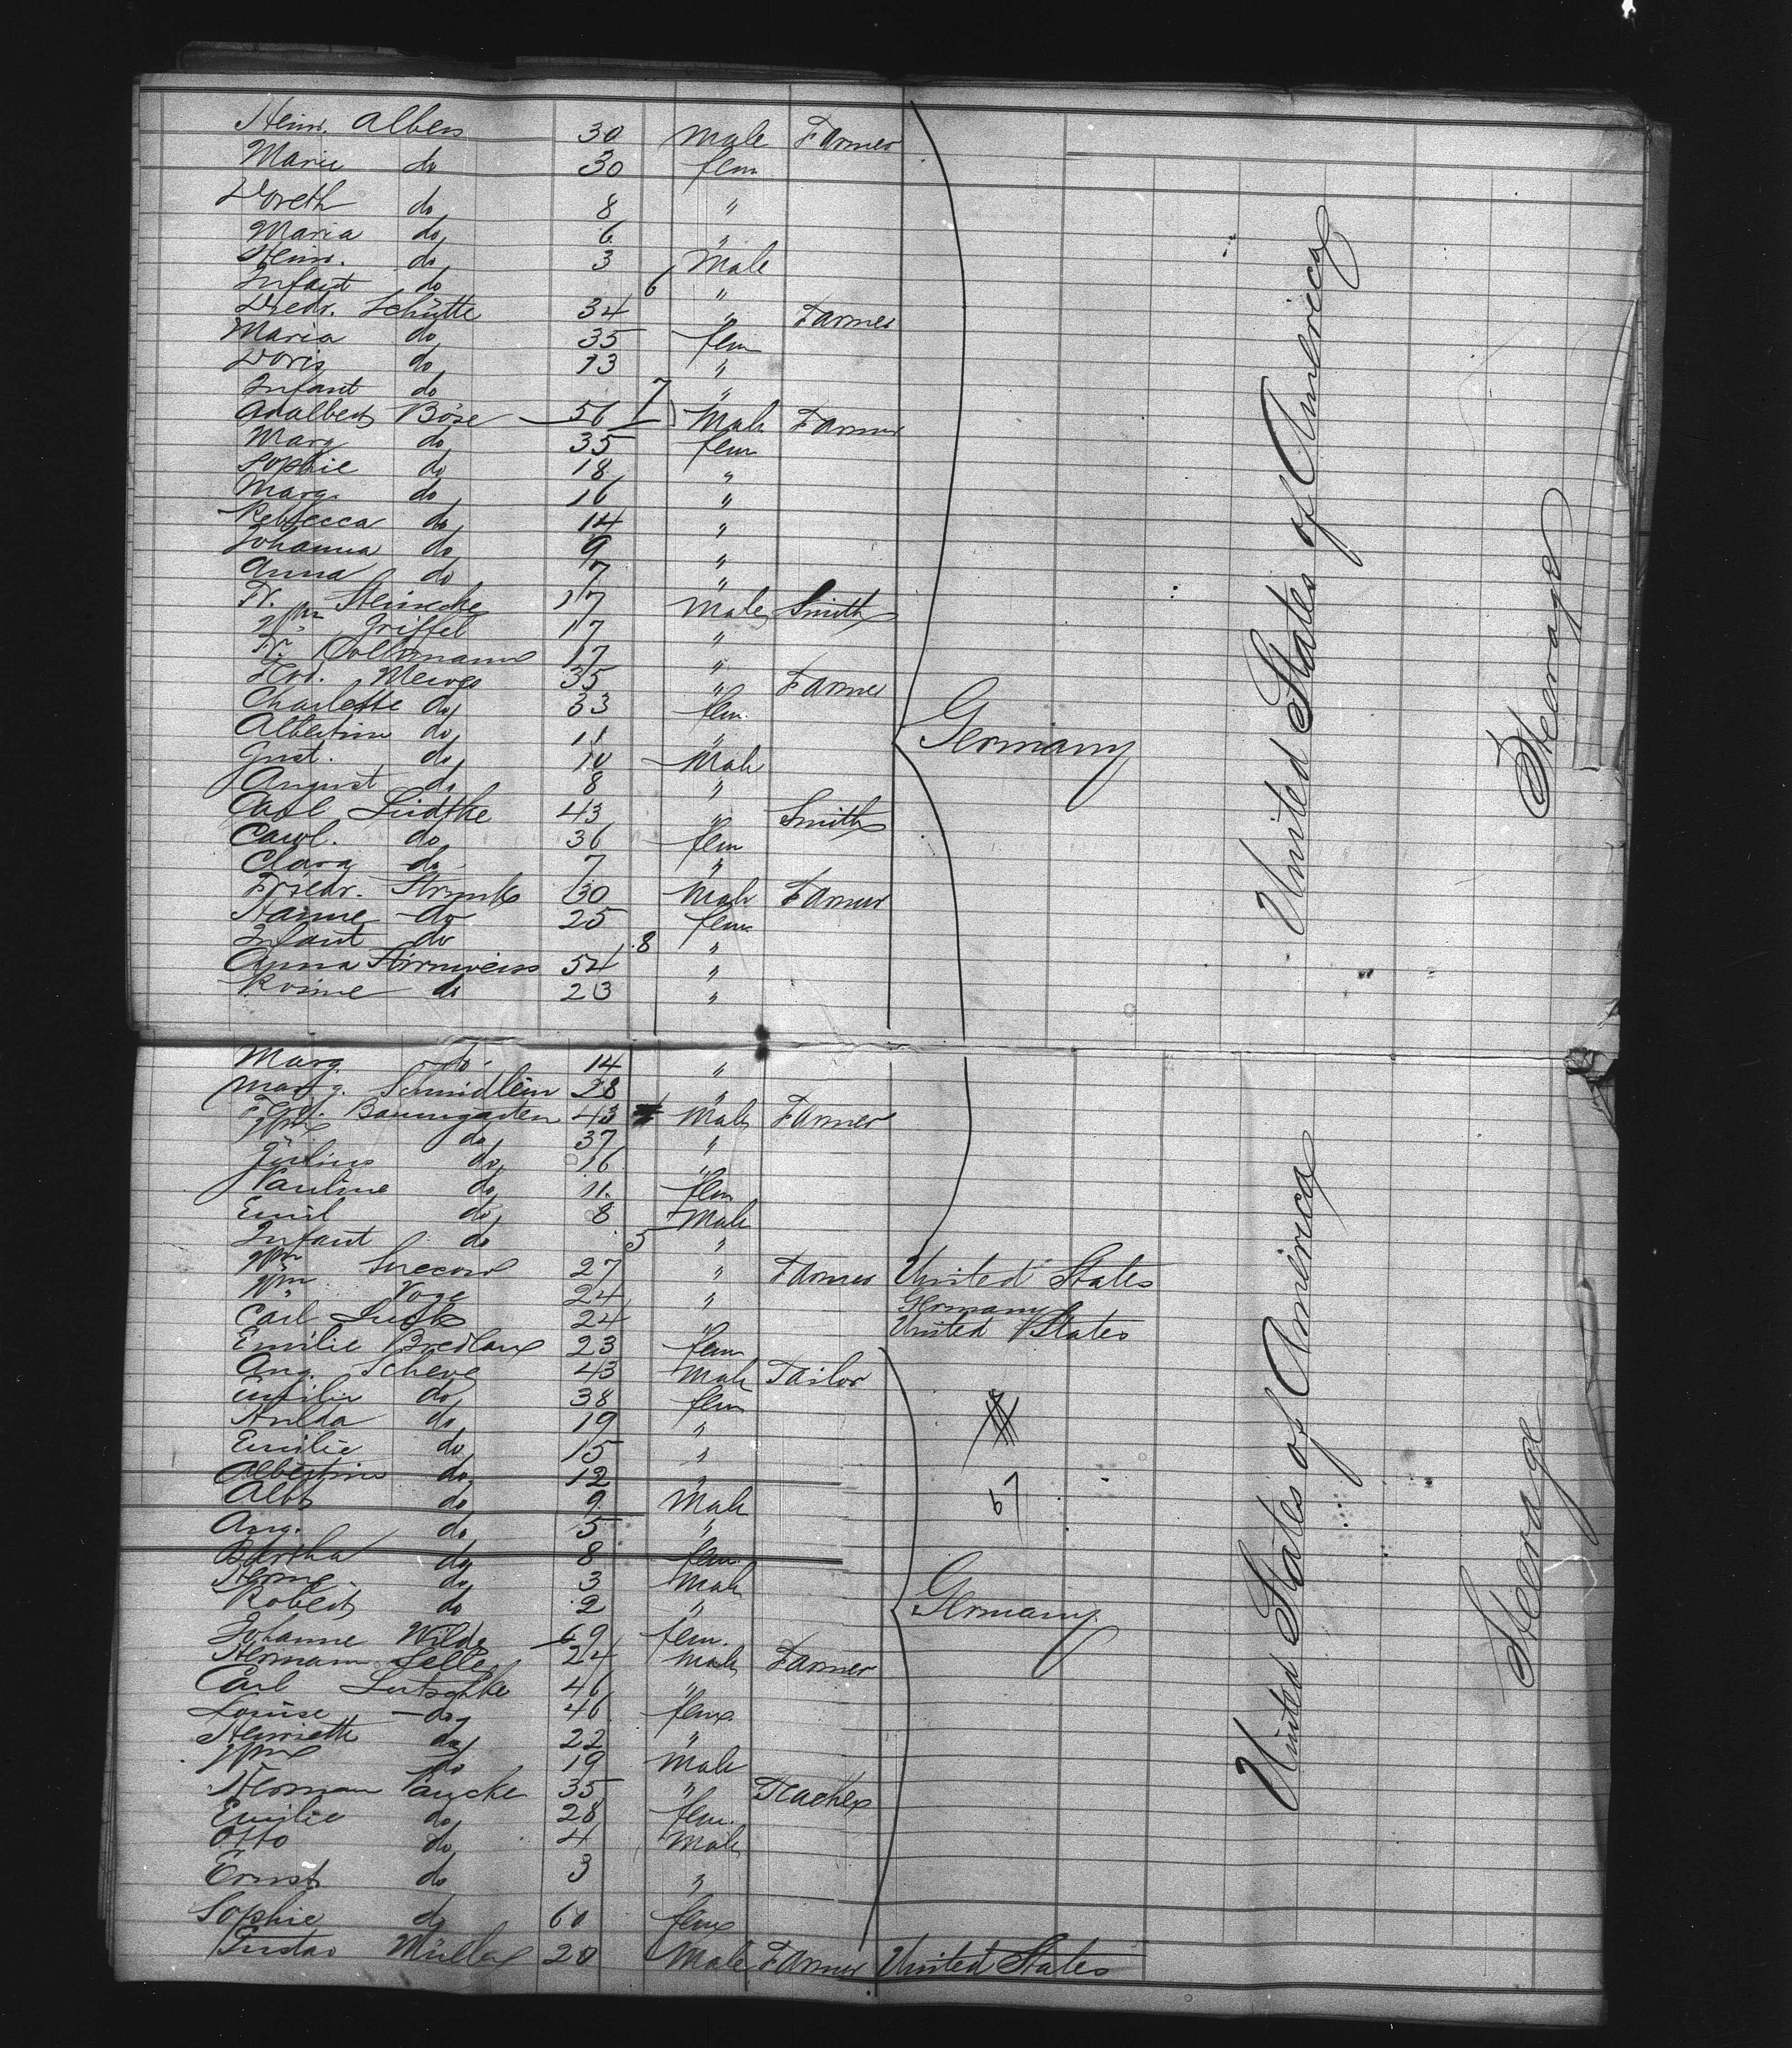 Heinr. Albers 30 Male Farmer
Marie do 30 fem
Doreth do 8 "
Maria do 6 "
Heinr. do 3 Male
Infant do 6 "
Diedr. Schütte 34 " Farmer
Maria do 35 fem
Doris do 13 "
Infant do 7 "
Adalbert Böse 56 Male Farmer
Marg do 35 fem
Sophie do 18 "
Marg. do 16 "
Rebecca do 14 "
Johanna do 9 "
Anna do 7 "
Fr. Steinecke 17 Male Smith
Wm Griffel 17 "
Fr. 17 "
Ferd. Mewes 35 " Farmer
Charlotte do 33 fem
Albertine do 11 "
Gust. do 10 Male
August do 8 "
Carl Lüdtke 43 " Smith
Carol. do 36 fem
Clara do 7 "
Friedr. Strunk 30 Male Farmer
Hanne do 25 fem
Infant do 8 "
Anna Hörnweiss 54 "
do 23 "
Germany
United States of America
Steerage
Marg do 14 "
Marg. Schmidlein 28 "
Ferd. Baumgarten 43 Male Farmer
Wm do 37 "
Julius do 16 "
Pauline do 11 fem
Emil do 8 Male
Infant do 5 "
Wm Succow 27 " Farmer United States
Wm Voge 24 " Germany
Carl 24 " United States
Emilie Bredlau 23 fem
Aug. Scheve 43 Male Tailor
Emilie do 38 fem
Hulda do 19 "
Emilie do 15 "
Albertine do 12 "
Albt do 9 Male
Aug. do 5 "
Bertha do 8 fem
Herm. do 3 Male
Robert do 2 "
Johanne Wilde 69 fem.
Hermann Selle 24 Male Farmer
Carl Lutschke 46 "
Louise do 46 fem
Henriette do 22 "
Wm do 19 Male
Herman Paucke 35 " Teacher
Emilie do 28 fem.
Otto do 4 Male
Ernst do 3 "
Sophie do 60 fem
Gustav Müller 20 Male Farmer United States
67
Germany
United States of America
Steerage